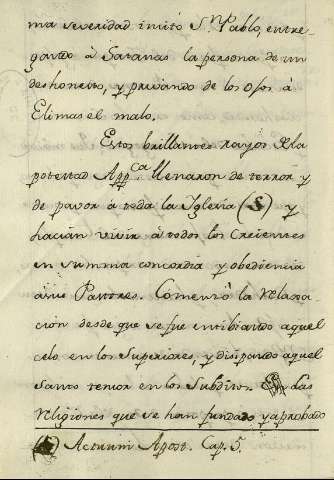 ma severidad imitó S.n Pablo, entre-
gando à Satanas la persona de un
deshonesto, y privando de los ojos à
Elimas el malo.
Estos brillantes rayos de la
potestad App.ca llenaron de terror y
de pavor à toda la Iglesia (5) y
hacian vivir à todos los Creientes
en summa concordia y obediencia
à sus Pastores. Comenzò la relaxa
cion desde que se fue entibiando aquel
celo en los Superiores, y disipando aquel
santo temor en los Subditos. En las
religiones que se han fundado y aprobado
(5) Actuum Apost. Cap. 5.